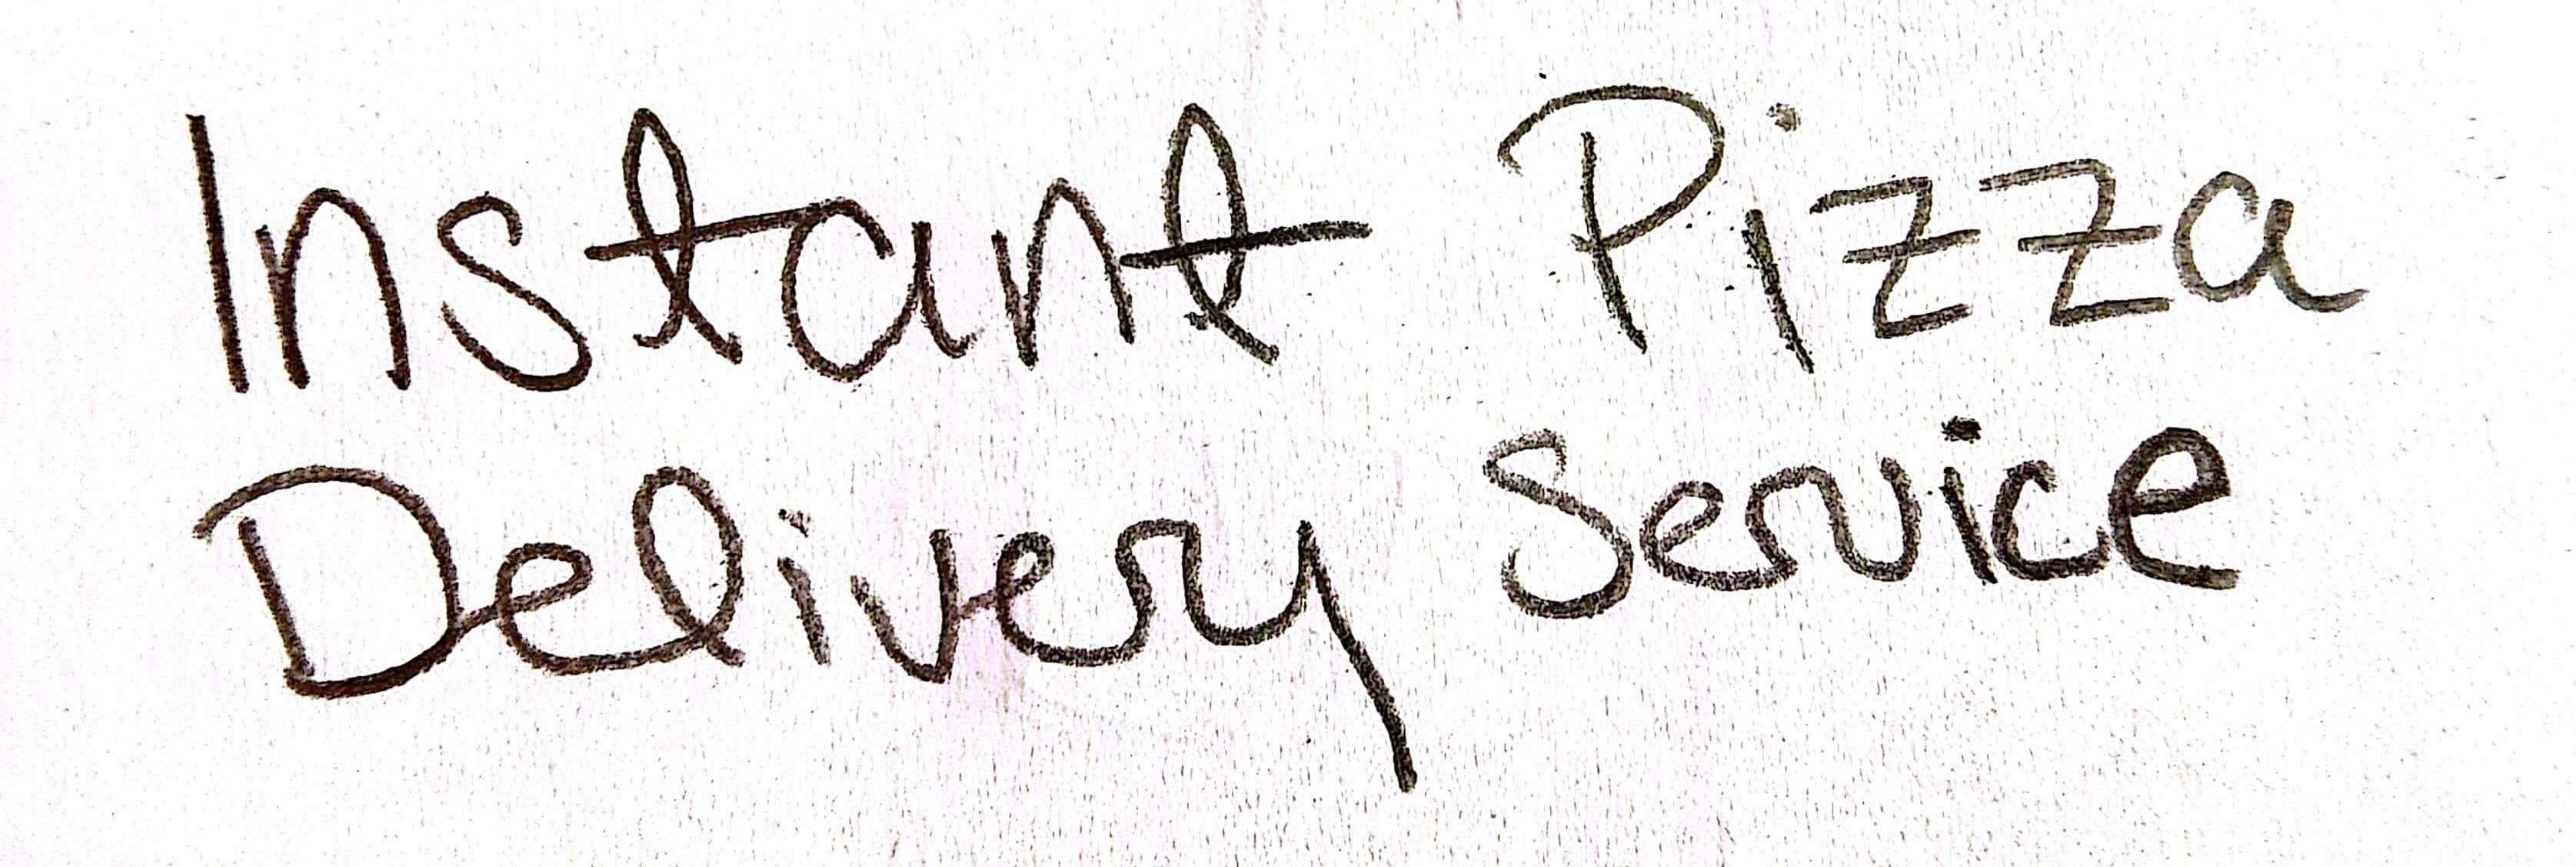 Instant Pizza
Delivery Service